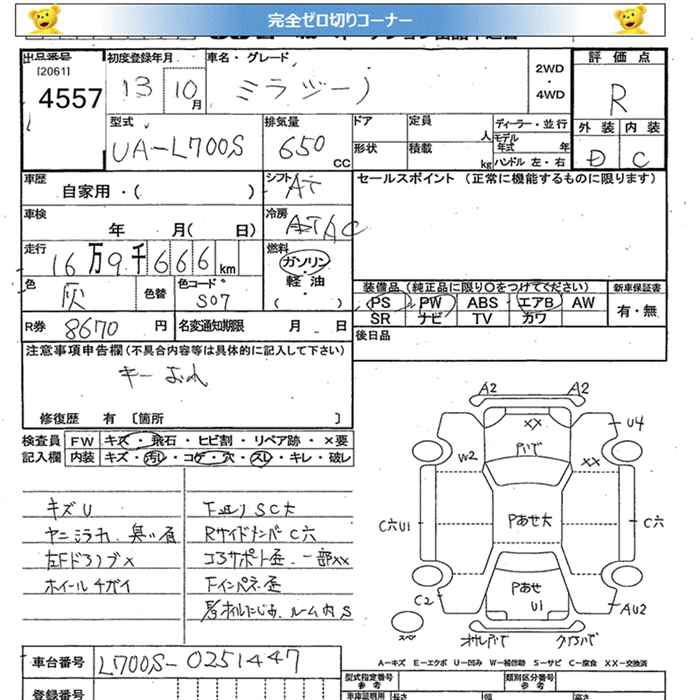 完全ゼロ切りコーナー
出品番号 初度登録年月 車名・グレード 評価点
[2061]
4557 13 10月 ミラジーノ 2WD・4WD R
外装 内装
D C
型式 排気量 ドア 定員 人 ディーラー・並行
UA-L700S 650 CC 形状 積載 kg モデル年式 年
ハンドル 左・右
車歴 シフト AT セールスポイント (正常に機能するものに限ります)
自家用・( )
車検 年 月( 日) 冷房 AC
走行 16万9千666km 燃料 ガソリン・軽油
色 灰 色替 色コード S07
装備品 (純正品に限り○をつけてください) 新車保証書
PS PW ABS エアB AW 有・無
SR ナビ TV カワ
R券 8670円 名変通知期限 月 日
後日品
注意事項申告欄 (不具合内容等は具体的に記入して下さい)
キーおれ
修復歴 有 [箇所 ]
検査員 FW キズ・飛石・ヒビ割・リペア跡・×要
記入欄 内装 キズ・汚レ・コゲ・穴・スレ・キレ・破レ
キズU
下廻りSC大
RサイドメンバーC穴
コアサポート歪、一部XX
左Fドアノブ×
ホイールチガイ
ルーム内S
A2 A2
XX U4
W2 XX
C穴U1 Pあせ大 C穴
Pあせ
U1
C2 AU2
スペア
A-キズ E-エクボ U-凹み W-補修跡 S-サビ C-腐食 XX-交換済
車台番号 L700S-0251447
登録番号
型式指定番号 参考 類別区分番号 参考